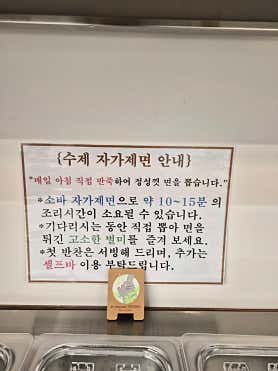 {수제 자가제면 안내}
"매일 아침 직접 반죽하여 정성껏 면을 뽑습니다."
*소바 자가제면으로 약 10~15분 의
조리시간이 소요될 수 있습니다.
*기다리시는 동안 직접 뽑아 면을
튀긴 고소한 별미를 즐겨 보세요.
*첫 반찬은 서빙해 드리며, 추가는
셀프바 이용 부탁드립니다.